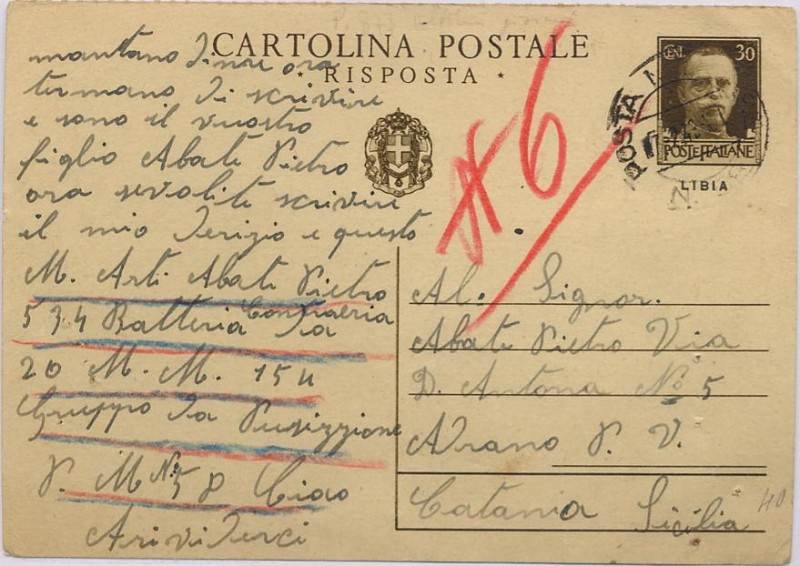 CARTOLINA POSTALE
* RISPOSTA *
CENT. 30
POSTE ITALIANE
LIBIA
POSTA
N.
N 6
mantano Dinre ora
termano Di scrivire
e sono il vuostro
figlio Abate Pietro
ora sevolite scrivire
il mio Derizio e questo
M. Arti Abate Pietro
534 Batteria Contraeria Da
20 M. M. 154
Gruppo Da Pusizzione
P. M. No. 5 P Ciao
Arivi Derci
Al. Signor.
Abate Pietro Via
D. Antona No 5
Adrano P. V.
Catania Sicilia
40